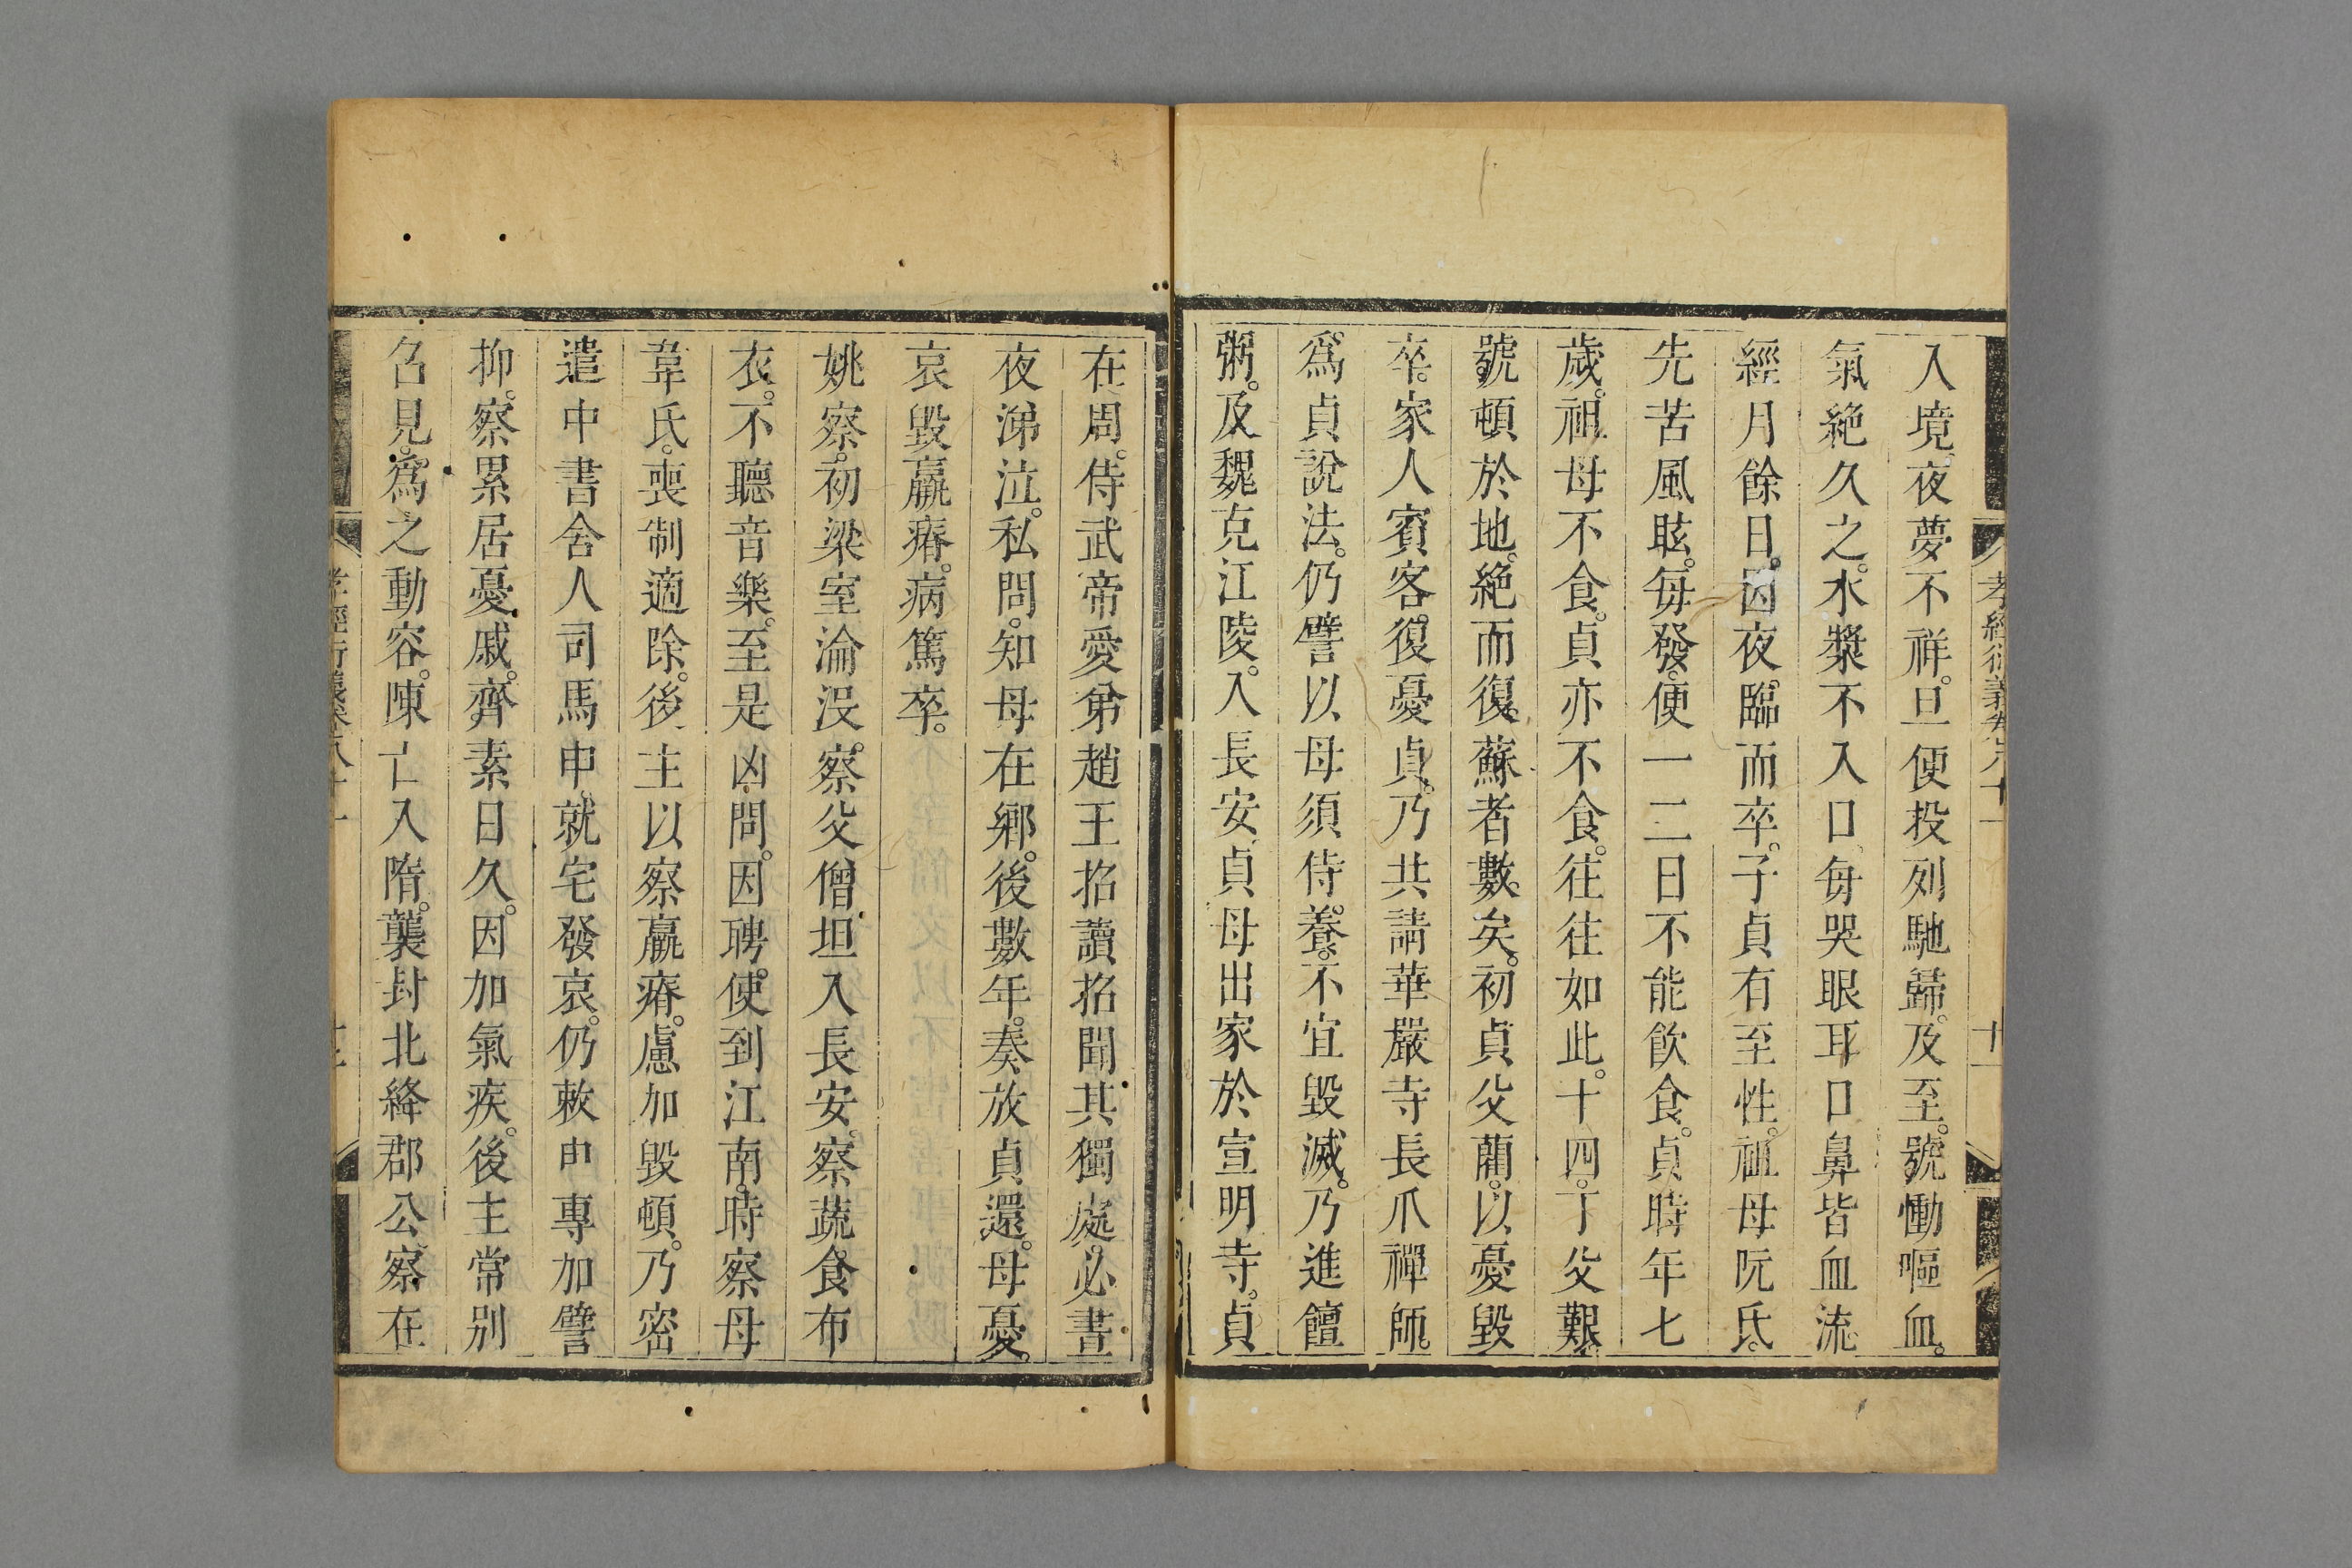 入境夜夢不祥。旦便投列馳歸。及至。號慟嘔血。
氣絶久之。水漿不入口。每哭眼耳口鼻皆血流。
經月餘日。因夜臨而卒。子貞有至性。祖母阮氏。
先苦風眩。每發。便一二日不能飲食。貞時年七
歲。祖母不食。貞亦不食。往往如此。十四。丁父艱。
號頓於地。絶而復蘇者數矣。初貞父藺。以憂毀
卒。家人賓客。復憂貞。乃共請華嚴寺長爪禪師。
爲貞說法。仍譬以母須侍養。不宜毀滅。乃進饘
粥。及魏克江陵。入長安。貞母出家於宣明寺。貞
孝經衍義卷八十一
十一
在周。侍武帝愛弟趙王招讀。招聞其獨處。必晝
夜涕泣。私問。知母在鄉。後數年。奏放貞還。母憂。
哀毀羸瘠。病篤卒。
姚察。初梁室淪没。察父僧坦入長安。察蔬食布
衣。不聽音樂。至是凶問。因聘使到江南。時察母
韋氏。喪制適除。後主以察羸瘠。慮加毀頓。乃密
遣中書舍人司馬申就宅發哀。仍敕申專加譬
抑。察累居憂戚。齊素日久。因加氣疾。後主常别
召見。爲之動容。陳亡入隋。襲封北絳郡公。察在
孝經衍義卷八十一